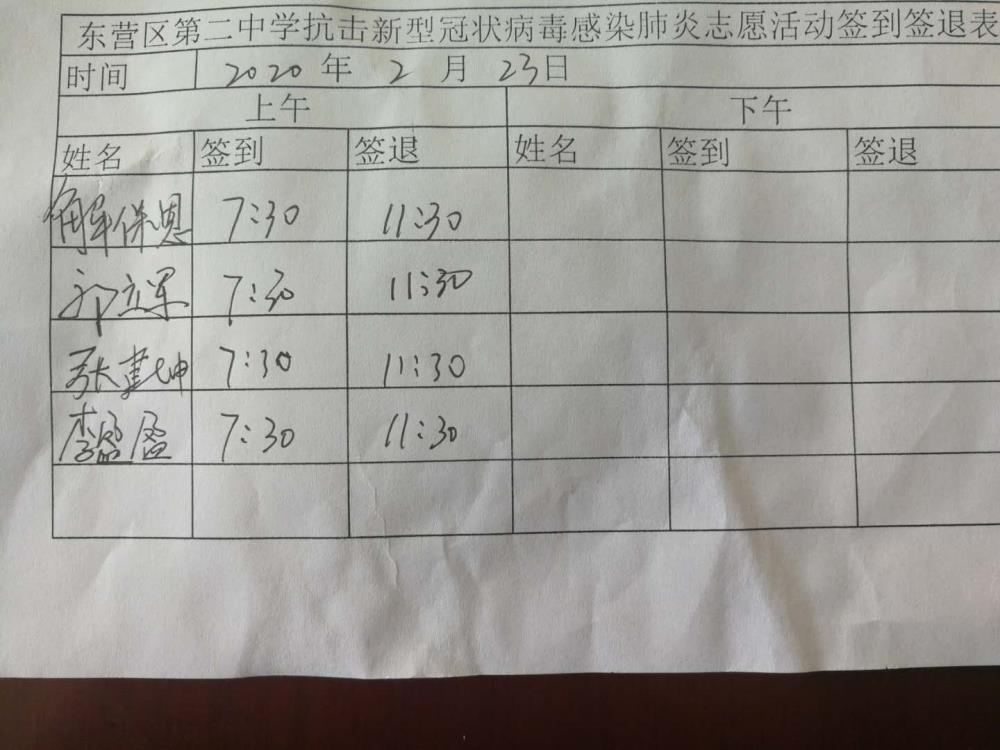 东营区第二中学抗击新型冠状病毒感染肺炎志愿活动签到签退表
时间 2020 年 2 月 23日
上午 下午
姓名 签到 签退 姓名 签到 签退
解保恩 7:30 11:30
郭立军 7:30 11:30
张建坤 7:30 11:30
李盈盈 7:30 11:30